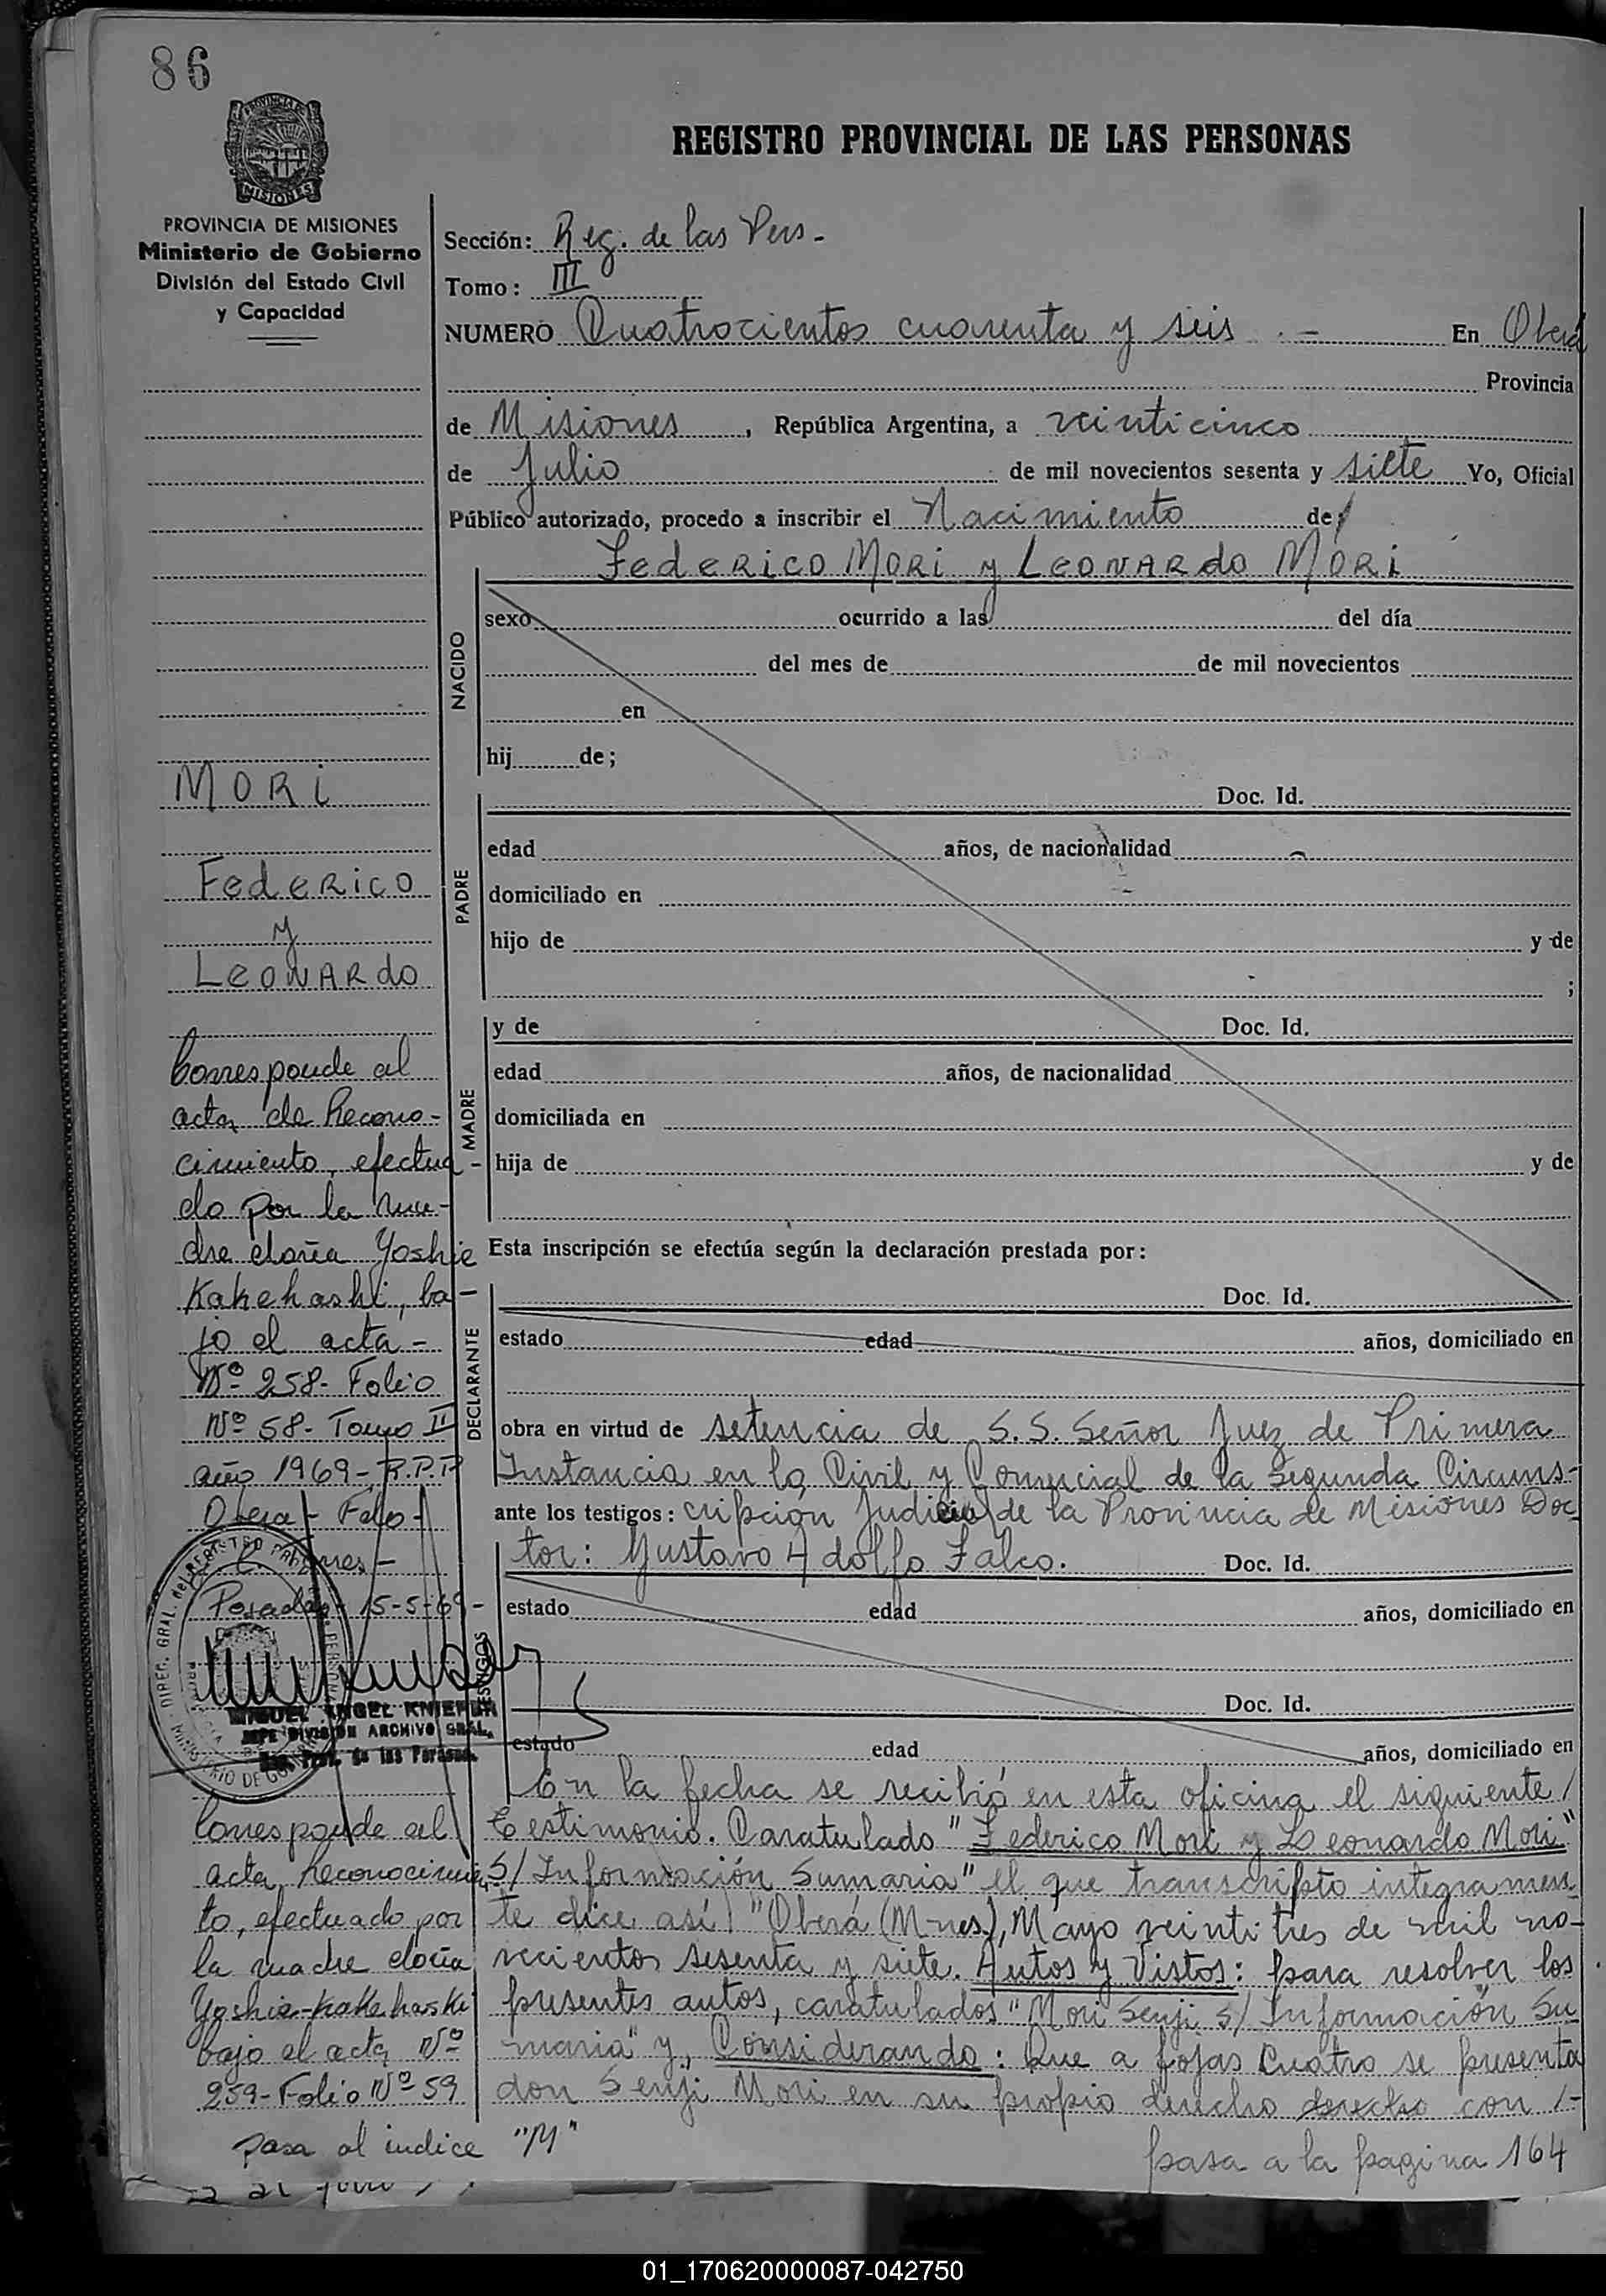 86
PROVINCIA DE MISIONES
Ministerio de Gobierno
División del Estado Civil
y Capacidad
REGISTRO PROVINCIAL DE LAS PERSONAS
Sección: Reg. de las Pers -
Tomo: III
NUMERO Cuatrocientos cuarenta y seis . - En Oberá
Provincia
de Misiones, República Argentina, a veinticinco
de Julio de mil novecientos sesenta y siete Yo, Oficial
Público autorizado, procedo a inscribir el Nacimiento de
Federico Mori y Leonardo Mori
NACIDO
sexo ocurrido a las del día
del mes de de mil novecientos
en
hij de;
PADRE
Doc. Id.
edad años, de nacionalidad
domiciliado en
hijo de y de
;
MADRE
y de Doc. Id.
edad años, de nacionalidad
domiciliada en
hija de y de
Esta inscripción se efectúa según la declaración prestada por:
DECLARANTE
Doc. Id.
estado edad años, domiciliado en
obra en virtud de setencia de S.S. Señor Juez de Primera
Instancia en lo Civil y Comercial de la Segunda Circuns-
ante los testigos: cripción Judicial de la Provincia de Misiones Doc
tor: Gustavo Adolfo Falco. Doc. Id.
TESTIGOS
estado edad años, domiciliado en
Doc. Id.
estado edad años, domiciliado en
En la fecha se recibió en esta oficina el siguiente /
Testimonio. Caratulado "Federico Mori y Leonardo Mori"
S/ Información Sumaria" el que transcripto integramen
te dice así: "Oberá (M-nes), Mayo veintitres de mil no-
vecientos sesenta y siete. Autos y Vistos: para resolver los
presentes autos, caratulados "Mori Senji S/ Información Su
maria" y, Considerando: Que a fojas cuatro se presenta
don Senji Mori en su propio derecho derecho con /-
pasa a la pagina 164
MORI
Federico
y
Leonardo
Corresponde al
acta de Recono-
cimiento, efectua-
do por la ma-
dre doña Yoshie
Kakehashi, ba-
jo el acta -
Nº 258- Folio
Nº 58- Tomo II
año 1969- R.P.P
Obera -
Posadas 15-5-69-
MIGUEL ANGEL KNIEPUR
JEFE DIVISION ARCHIVO GRAL.
Reg. Prov. de las Personas
Corresponde al
acta Reconocimien
to, efectuado por
la madre doña
Yoshie-Kakehashi
bajo el acta Nº
259- Folio Nº 59
pasa al indice "M"
01_170620000087-042750